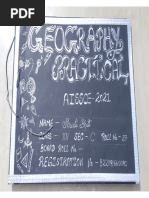 GEOGRAPHY
PRACTICAL
AISSCE-2021
NAME -
CLASS - XII SEC - C ROLL No - 27
BOARD ROLL No -
REGISTRATION No -